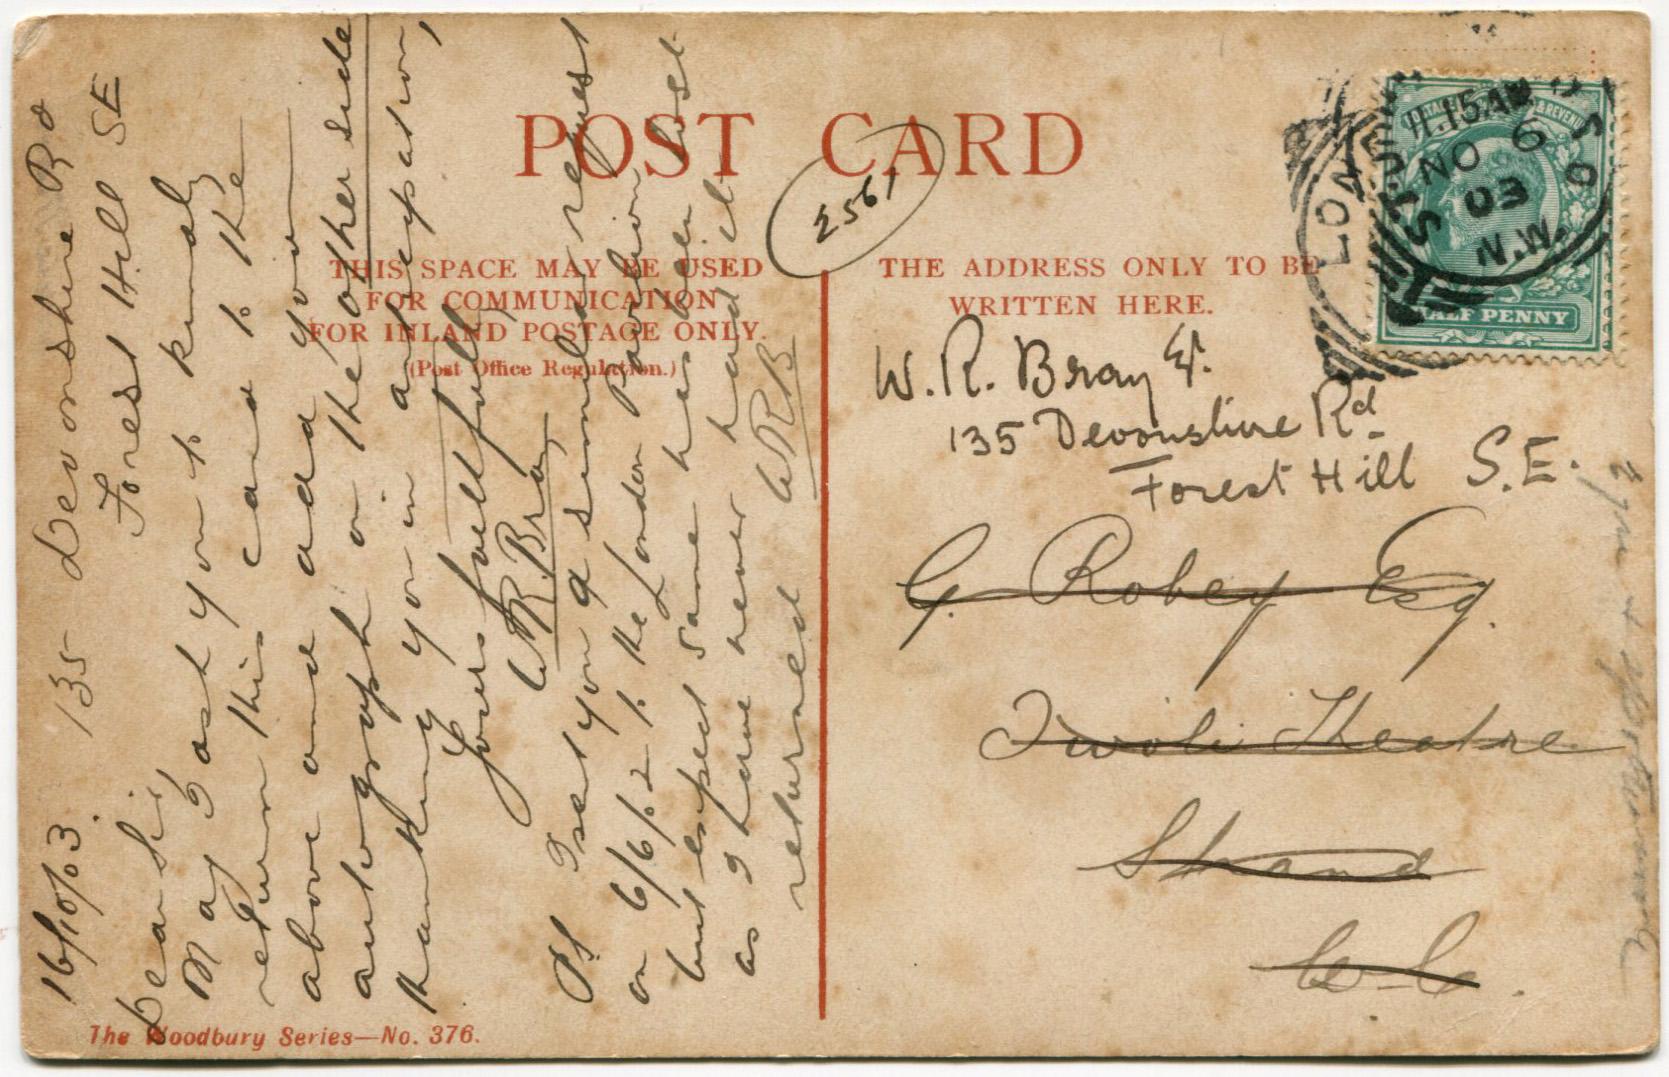 POST CARD
2561
THIS SPACE MAY BE USED
FOR COMMUNICATION
FOR INLAND POSTAGE ONLY.
(Post Office Regulation.)
THE ADDRESS ONLY TO BE
WRITTEN HERE.
POSTAGE & REVENUE
HALF PENNY
LON
11.15AM
NO 6
03
W. R. Bray Esq.
135 Devonshire Rd
Forest Hill S.E.
G. Robey Esq.
Tivoli Theatre
Strand
W-C.
16/10/03. 135 Devonshire Rd
Forest Hill SE
Dear Sir,
May I ask you to kindly
return this card to the
above and add your
autograph on the other side
thanking you in anticipation,
Yours faithfully,
W.R. Bray
PS I sent you a similar request
on 6/6/02 to the London Pavilion
but expect same has been lost
as I have never had it
returned WRB
The Woodbury Series—No. 376.